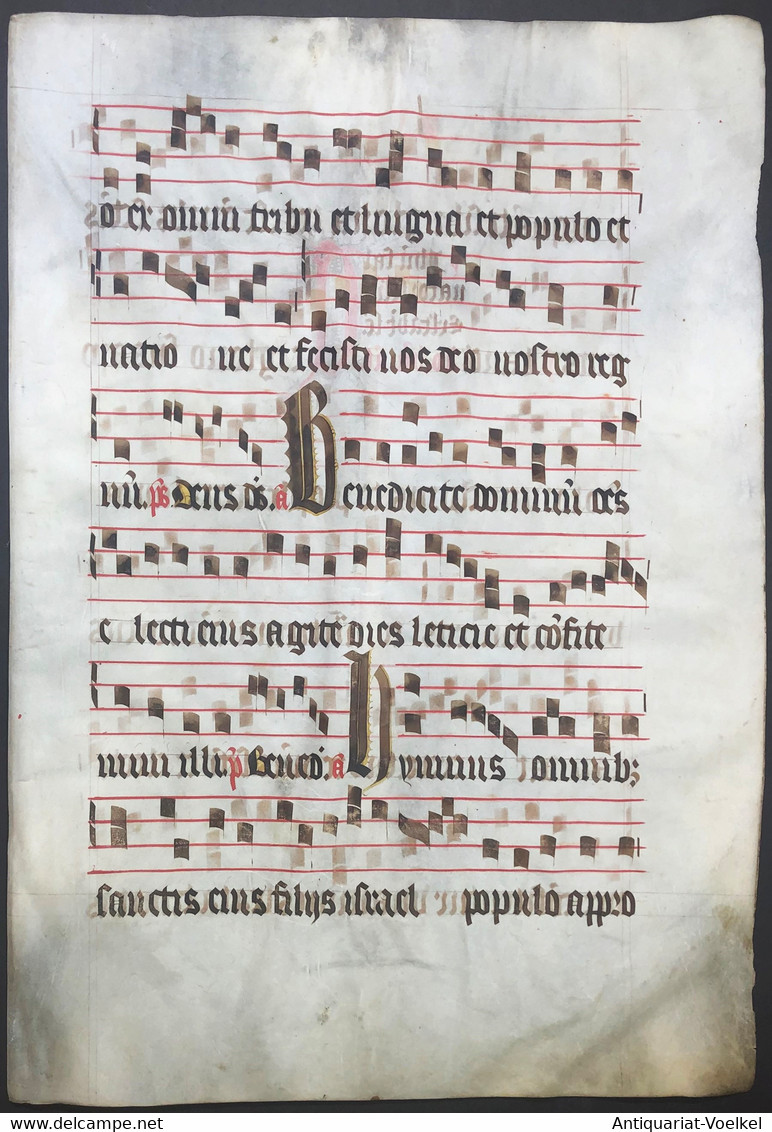 o ex omni tribu et lingua et populo et
natio ne et fecisti nos deo nostro reg
nū. ps Deus ds. a Benedicite dominū oēs
e lecti eius agite dies leticie et cōfite
mini illi. p̄ Bened. a hymnus omnib;
sanctis eius filijs israel populo appro
Antiquariat-Voelkel